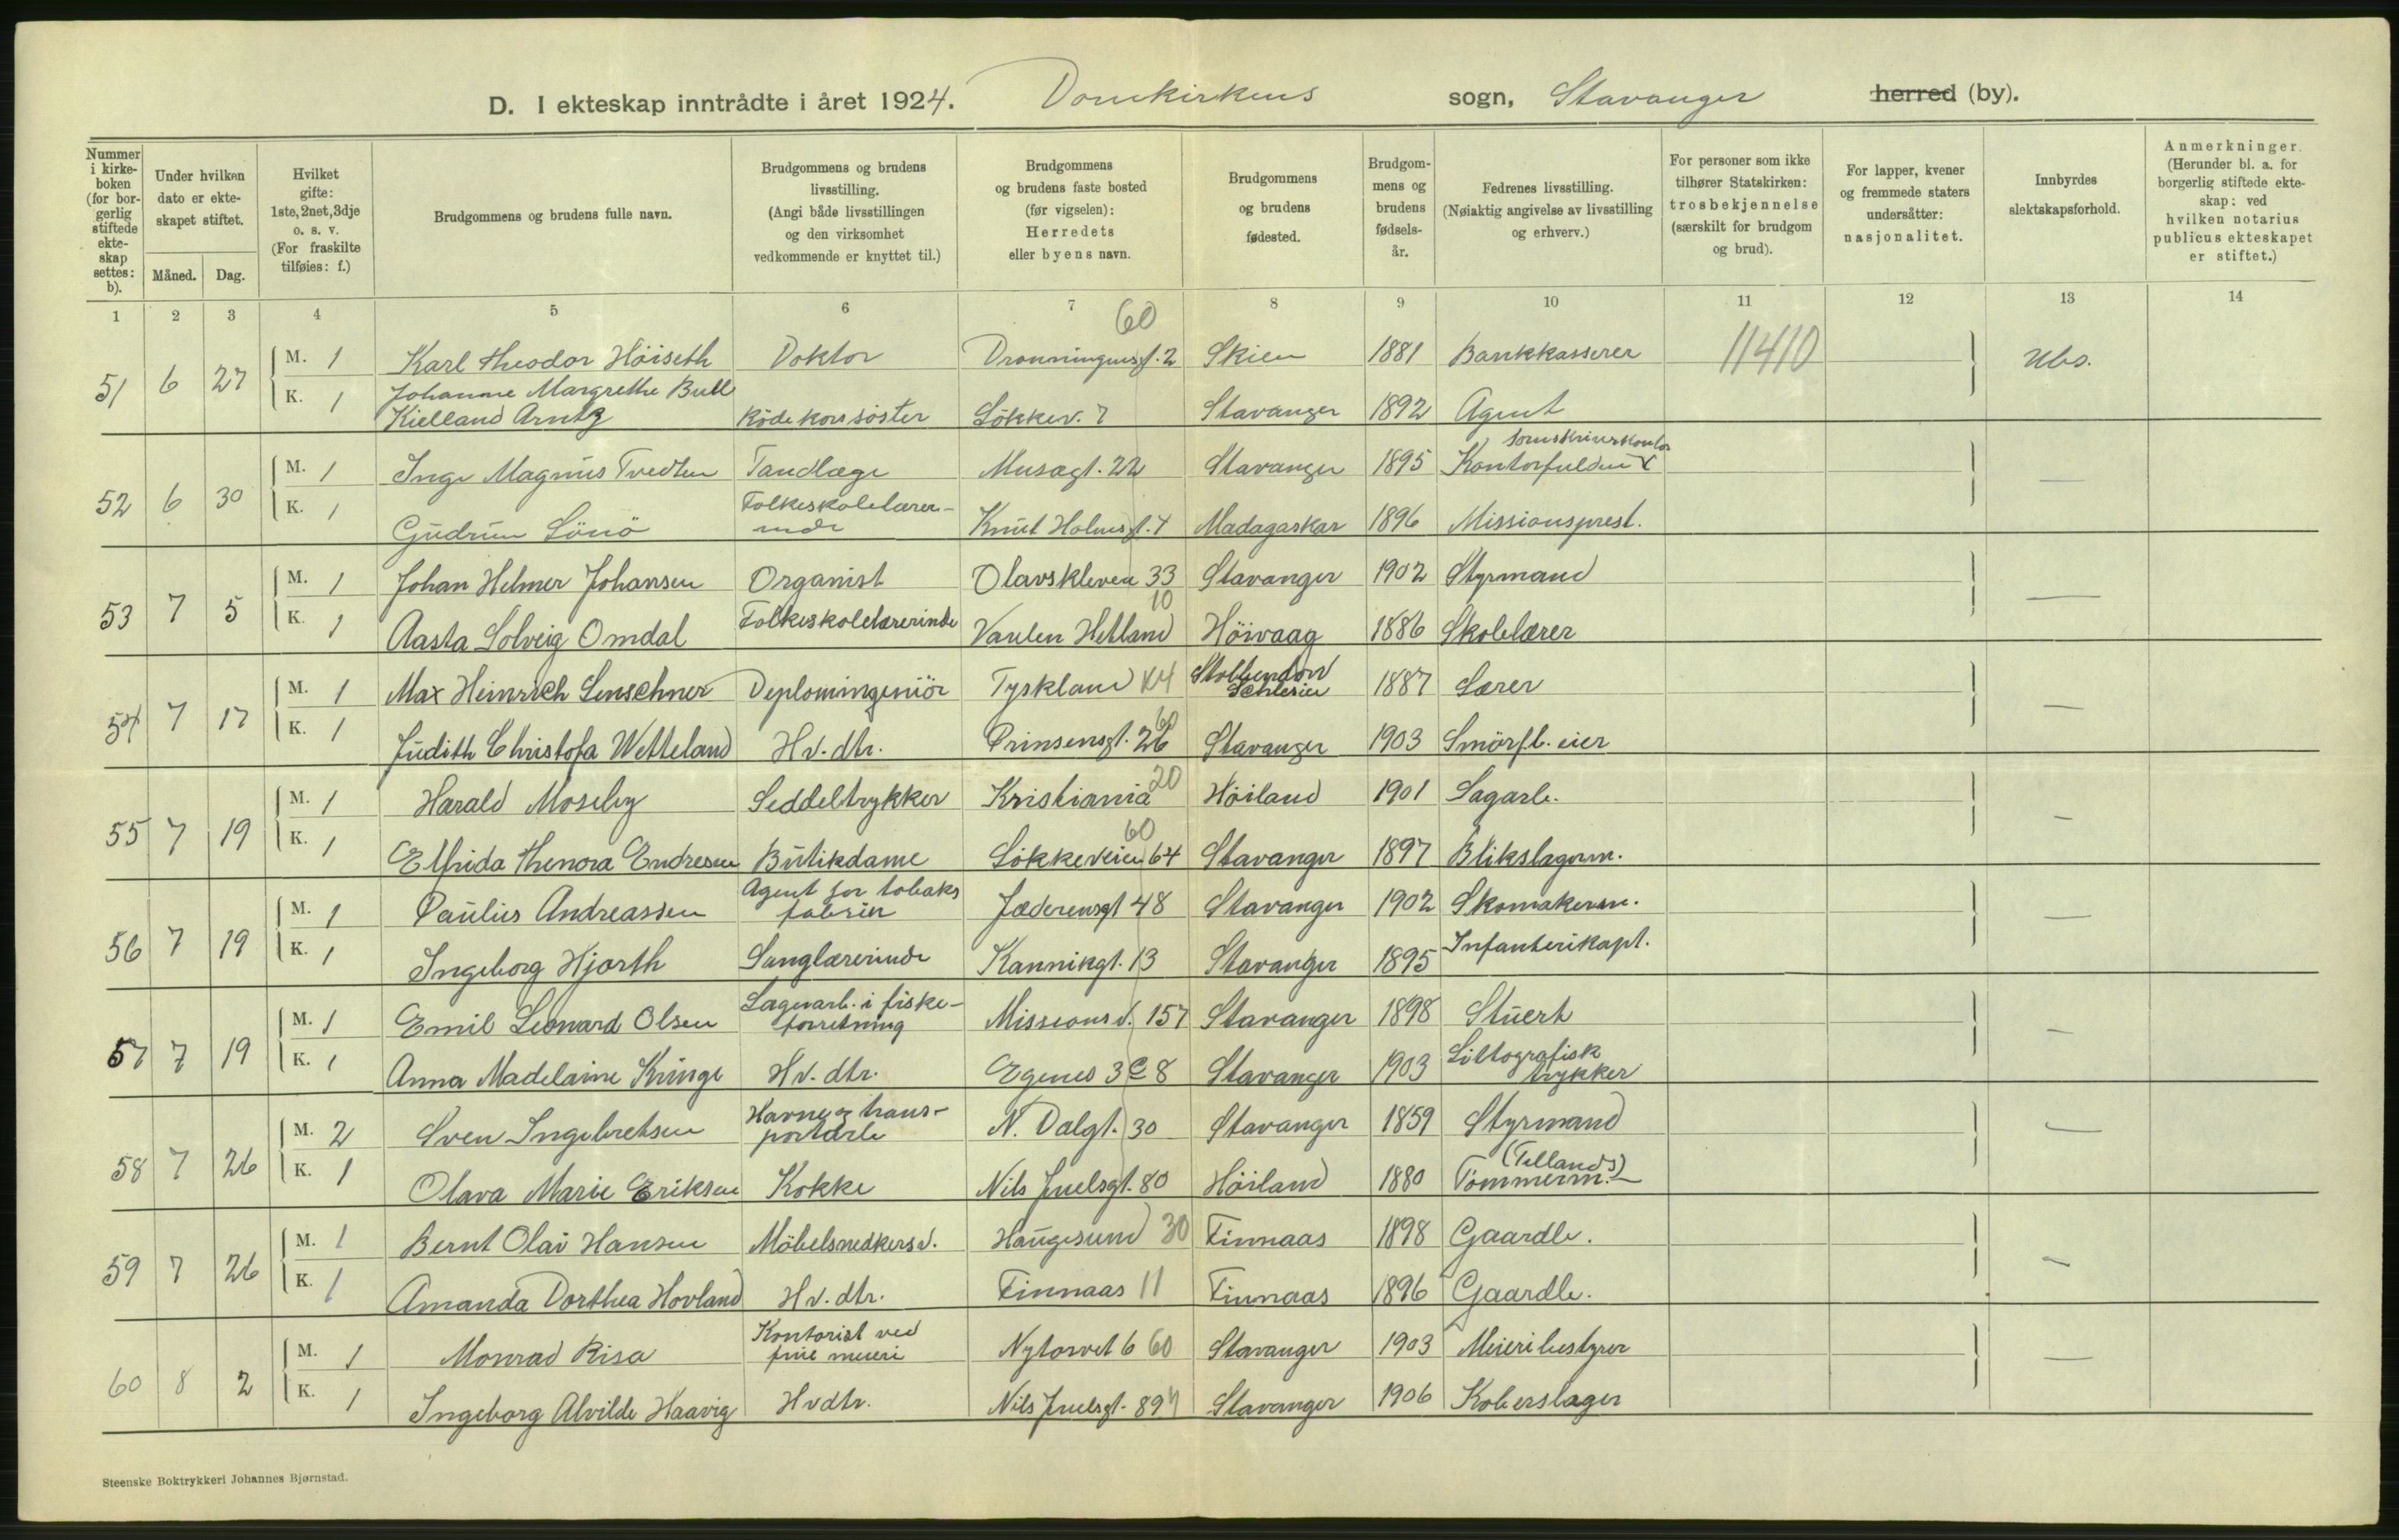 D. I ekteskap inntrådte i året 1924. Domkirkens sogn, Stavanger herred (by).
Nummer i kirkeboken (for borgerlig stiftede ekteskap settes: b).
Under hvilken dato er ekteskapet stiftet.
Måned. Dag.
Hvilket gifte: 1ste, 2net, 3dje o. s. v. (For fraskilte tilføies: f.)
Brudgommens og brudens fulle navn.
Brudgommens og brudens livsstilling. (Angi både livsstillingen og den virksomhet vedkommende er knyttet til.)
Brudgommens og brudens faste bosted (før vigselen): Herredets eller byens navn.
Brudgommens og brudens fødested.
Brudgommens og brudens fødselsår.
Fedrenes livsstilling. (Nøiaktig angivelse av livsstilling og erhverv.)
For personer som ikke tilhører Statskirken: trosbekjennelse (særskilt for brudgom og brud).
For lapper, kvener og fremmede staters undersåtter: nasjonalitet.
Innbyrdes slektskapsforhold.
Anmerkninger. (Herunder bl. a. for borgerlig stiftede ekteskap: ved hvilken notarius publicus ekteskapet er stiftet.)
1 2 3 4 5 6 7 8 9 10 11 12 13 14
60
51 6 27 M. 1 Karl Theodor Höiseth Doktor Dronningensgt. 2 Skien 1881 Bankkasserer 11410 Ubs.
K. 1 Johanne Margrethe Bull
Kielland Arntz Rödekorssöster Lökkev. 7 Stavanger 1892 Agent
52 6 30 M. 1 Inge Magnus Tvedten Tandlæge Musægt. 22 Stavanger 1895 Kontorfuldm. v
Sorenskriverkontor
K. 1 Gudrun Sönö Folkeskolelærer-
inde Knut Holmsgt. 7 Madagaskar 1896 Missionsprest.
53 7 5 M. 1 Johan Helmer Johansen Organist Olavskleven 33 Stavanger 1902 Styrmand
10
K. 1 Aasta Solveig Omdal Folkeskolelærerinde Vaulen Hetland Höivaag 1886 Skolelærer
54 7 17 M. 1 Max Heinrich Lenschner Deplomingeniör Tyskland X4 Schlesien 1887 Lærer
60
K. 1 Judith Christofa Wetteland Hv. dtr. Prinsensgt. 26 Stavanger 1903 Smörfb. eier
20
55 7 19 M. 1 Harald Moseby Seddeltrykker Kristiania Höiland 1901 Sagarb.
60
K. 1 Elfrida Thenora Endresen Butikdame Lökkeveien 64 Stavanger 1897 Blikslagerm.
56 7 19 M. 1 Paulus Andreassen Agent for tobaks
fabrik Jæderensgt 48 Stavanger 1902 Skomakerm.
K. 1 Ingeborg Hjorth Sanglærerinde Kannikgt. 13 Stavanger 1895 Infanterikapt.
57 7 19 M. 1 Emil Leonard Olsen Lagerarb. i fiske-
forretning Missionsv. 157 Stavanger 1898 Stuert
K. 1 Anna Madelaine Kringe Hv. dtr. Egenes 3 C 8 Stavanger 1903 Littografisk
trykker
58 7 26 M. 2 Sven Ingebretsen Havne og trans-
portarb N. Dalgt. 30 Stavanger 1859 Styrmand
K. 1 Olava Marie Eriksen Kokke Nils Juelsgt. 80 Höiland 1880 Tömmerm.
(Tellands)
59 7 26 M. 1 Bernt Olai Hansen Möbelsnedkersv. Haugesund 30 Finnaas 1898 Gaardb.
K. 1 Amanda Dorthea Hovland Hv. dtr. Finnaas 11 Finnaas 1896 Gaardb.
60 8 2 M. 1 Monrad Risa Kontorist ved
meieri Nytorvet 6 60 Stavanger 1903 Meieribestyrer
K. 1 Ingeborg Alvilde Haavig Hvdtr. Nils Juelsgt. 89 Stavanger 1906 Koberslager
Steenske Boktrykkeri Johannes Bjørnstad.